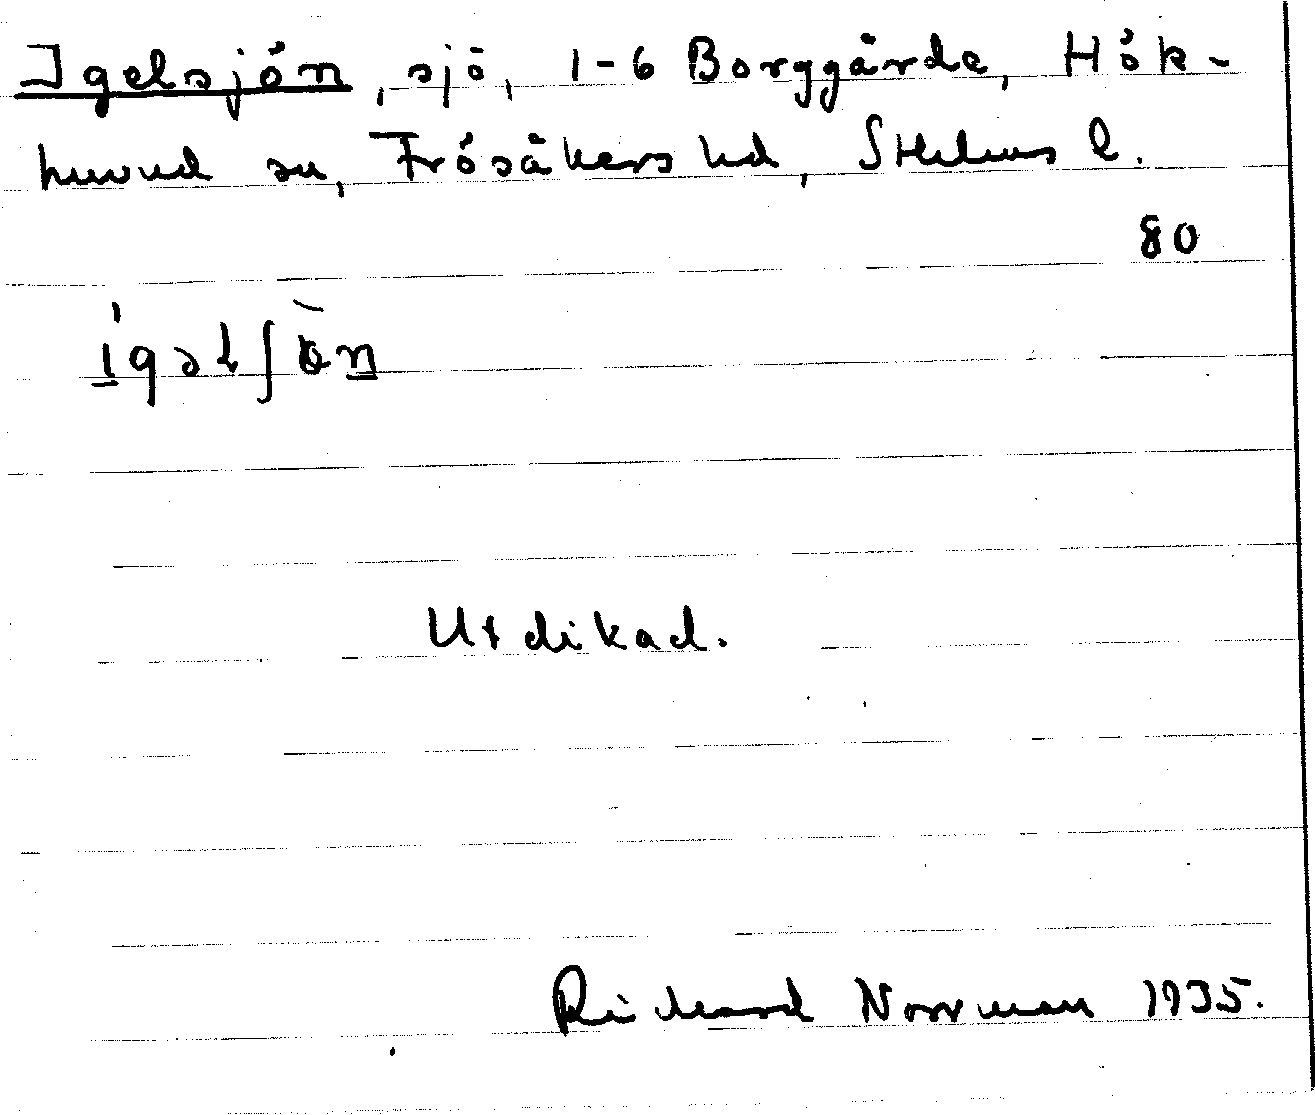 Igelsjön, sjö, 1-6 Borggärde, Hök-
huvud sn, Frösåkers hd, Sthlms l.
80
ı́gəlʃö̀n
Utdikad.
Richard Norrman 1935.